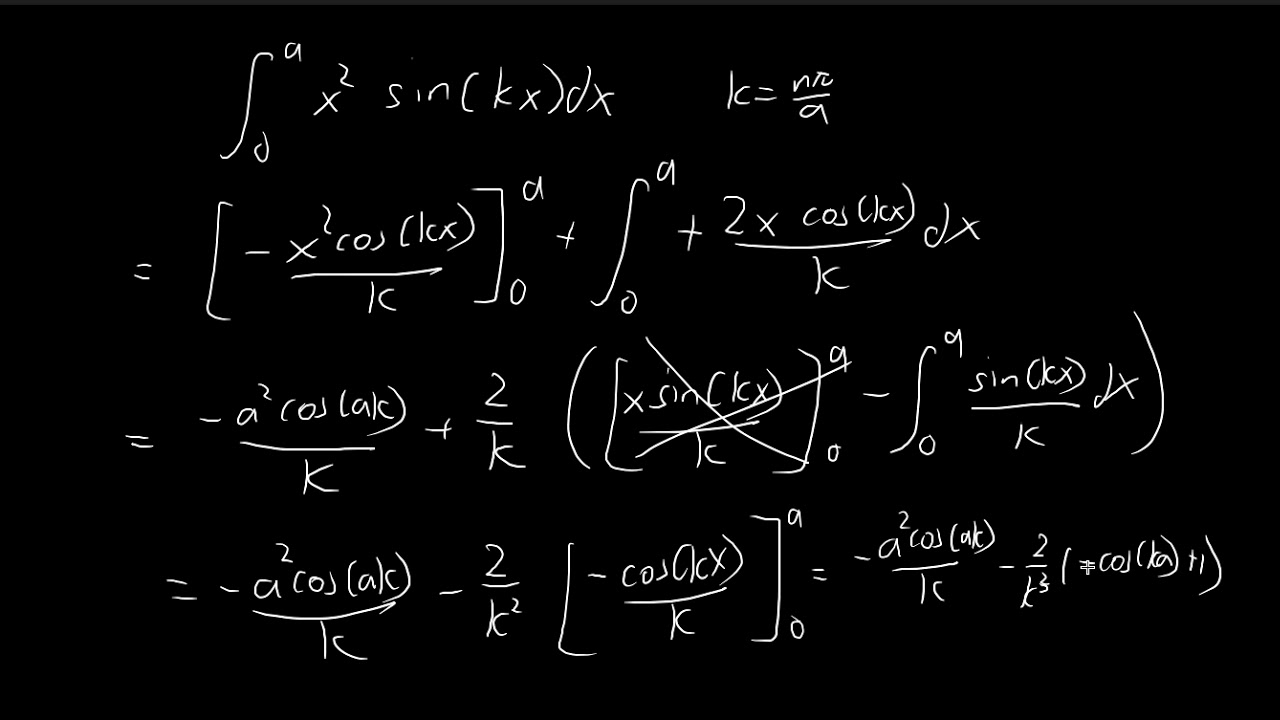 ∫₀ᵃ x² sin(kx)dx    k = nπ/a
= [ -x²cos(kx)/k ]₀ᵃ + ∫₀ᵃ + 2x cos(kx)/k dx
= -a²cos(ak)/k + 2/k ( [ x sin(kx)/k ]₀ᵃ - ∫₀ᵃ sin(kx)/k dx )
= -a²cos(ak)/k - 2/k² [ -cos(kx)/k ]₀ᵃ = -a²cos(ak)/k - 2/k³ (-cos(ka)+1)